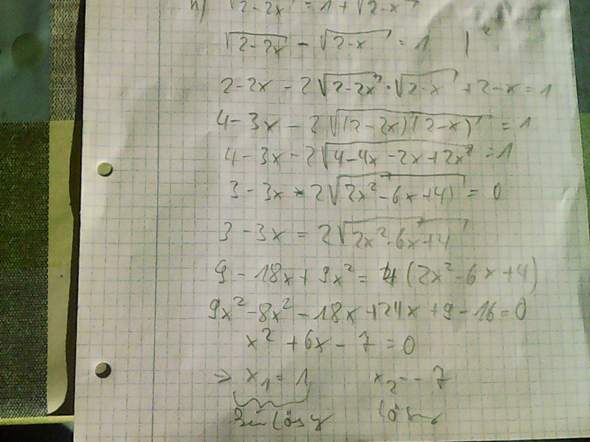 n) √(2-2x) = 1 + √(2-x)
√(2-2x) - √(2-x) = 1 | ²
2-2x - 2√(2-2x) · √(2-x) + 2-x = 1
4-3x - 2√((2-2x)(2-x)) = 1
4-3x - 2√(4-4x-2x+2x²) = 1
3-3x - 2√(2x²-6x+4) = 0
3-3x = 2√(2x²-6x+4)
9 - 18x + 9x² = 4(2x²-6x+4)
9x²-8x²-18x+24x+9-16=0
x² + 6x - 7 = 0
⇒ x₁ = 1 x₂ = -7